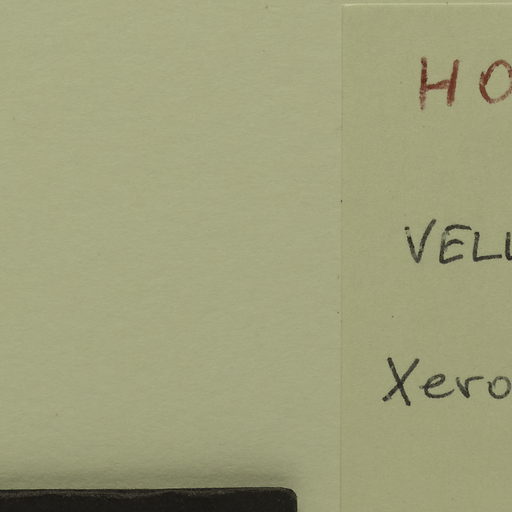 HO
VELL
Xero